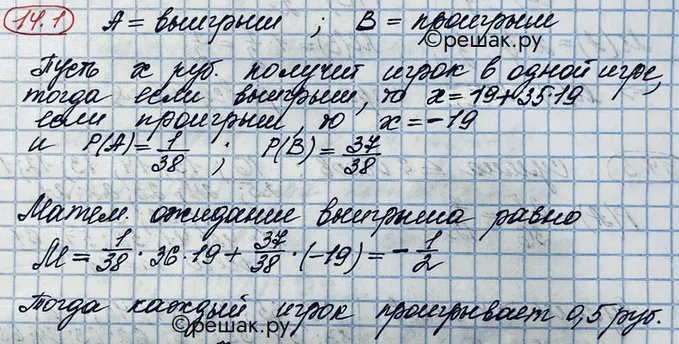 14.1 A = выигрыш ; B = проигрыш
©решак.ру
Пусть x руб. получит игрок в одной игре,
тогда если выигрыш, то x = 19 + 35·19
если проигрыш, то x = −19
и P(A) = 1/38 ; P(B) = 37/38
Матем. ожидание выигрыша равно
M = 1/38 · 36 · 19 + 37/38 · (−19) = −1/2
Тогда каждый игрок проигрывает 0,5 руб.
©решак.ру